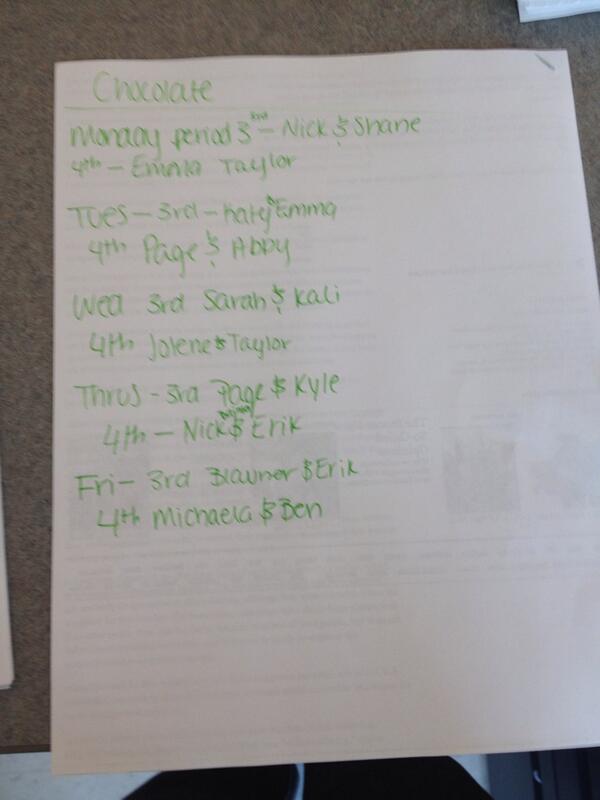 Chocolate
Monday period 3rd - Nick & Shane
4th - Emma Taylor
Tues - 3rd - Katy & Emma
4th Page & Abby
Wed 3rd Sarah & Kali
4th Jolene & Taylor
Thrus - 3rd Page & Kyle
4th - Nick & Erik
Fri - 3rd Blauner & Erik
4th Michaela & Ben